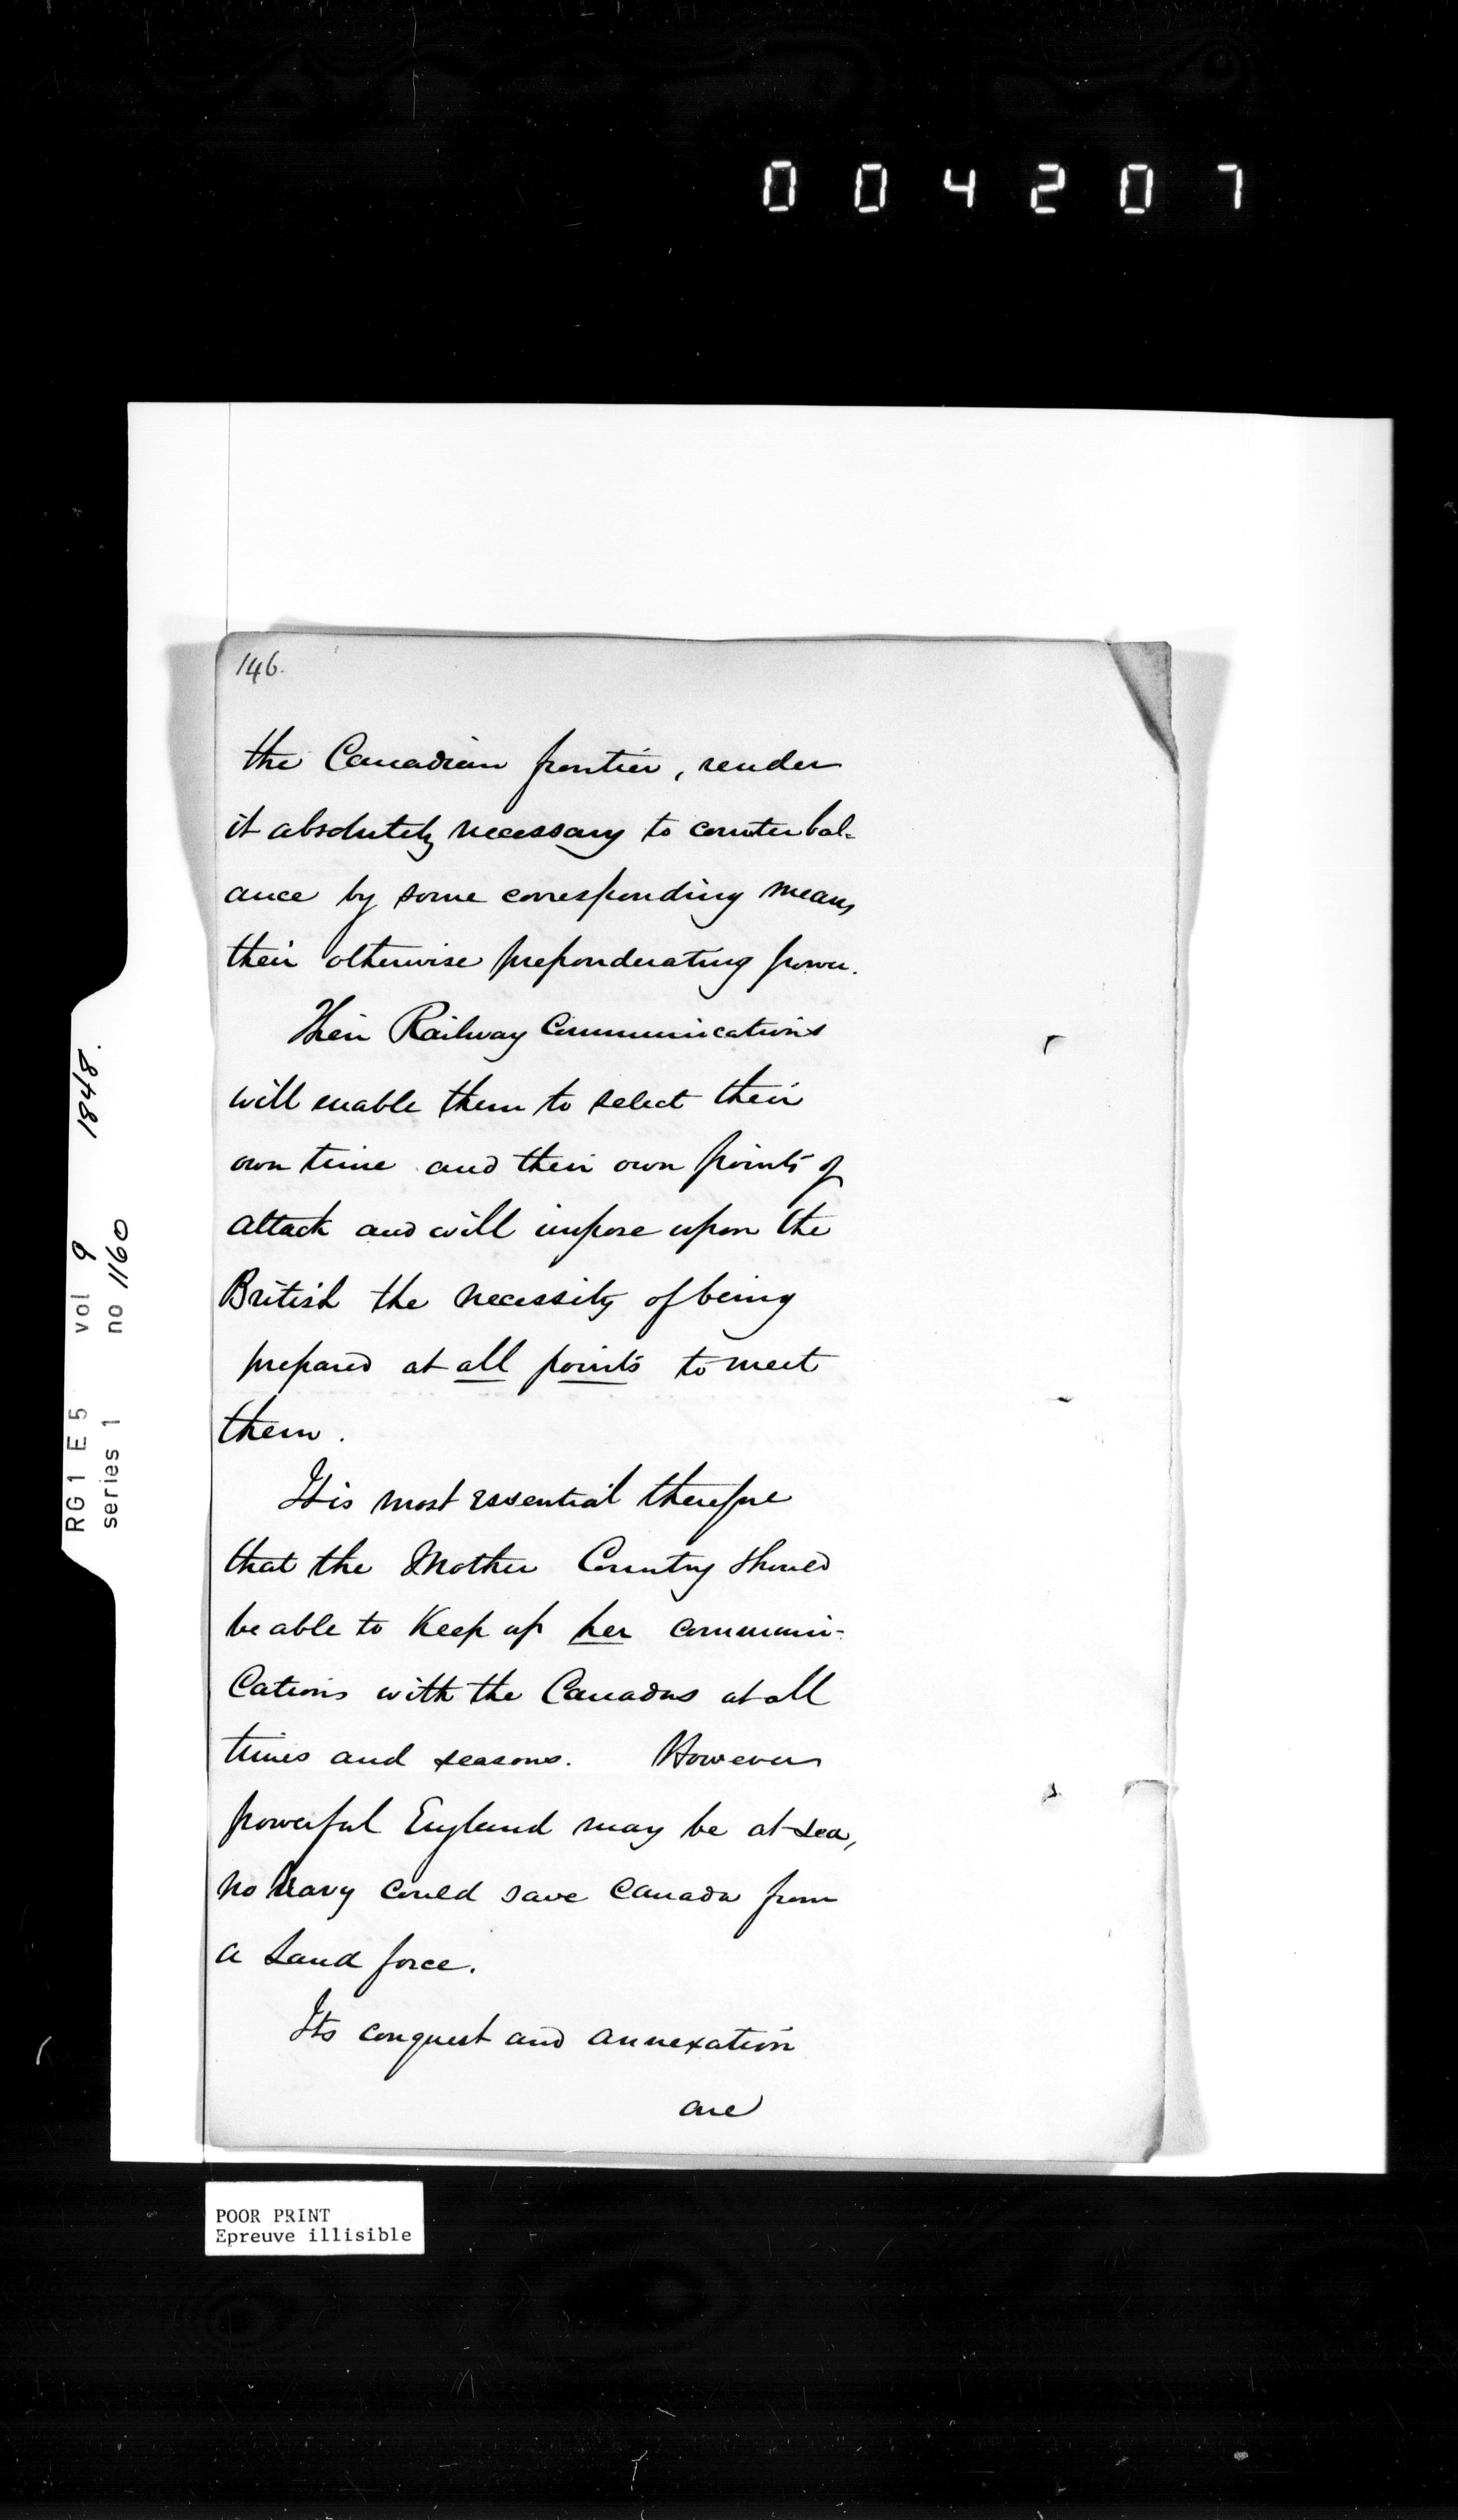 004207
146.
the Canadian frontier, render
it absolutely necessary to counterbal-
ance by some corresponding means
their otherwise preponderating power.
Their Railway Communications
will enable them to select their
own time and their own points of
attack and will impose upon the
British the necessity of being
prepared at all points to meet
them.
It is most essential therefore
that the Mother Country should
be able to Keep up her communi-
cations with the Canadas at all
times and seasons. However
powerful England may be at sea,
no Navy could save Canada from
a Land force.
Its conquest and annexation
are
RG 1 E 5 vol 9 1848.
series 1 no 1160
POOR PRINT
Epreuve illisible